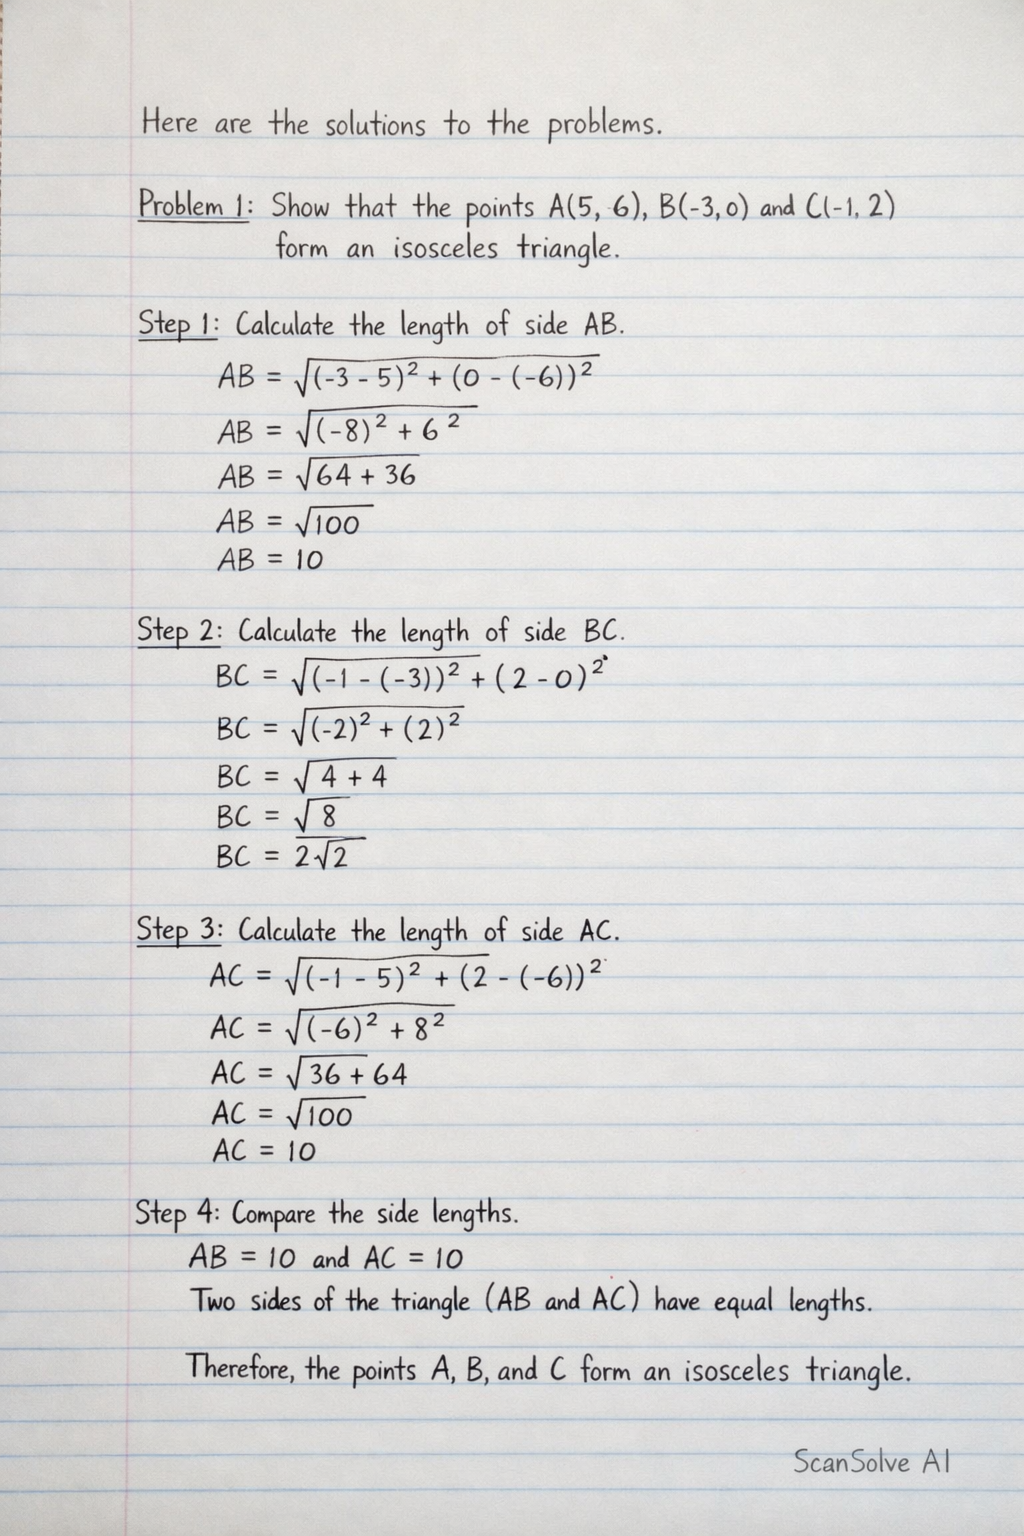 Here are the solutions to the problems.
Problem 1: Show that the points A(5, 6), B(-3,0) and C(-1, 2)
form an isosceles triangle.
Step 1: Calculate the length of side AB.
AB = √(-3 - 5)² + (0 - (-6))²
AB = √(-8)² + 6²
AB = √64 + 36
AB = √100
AB = 10
Step 2: Calculate the length of side BC.
BC = √(-1 - (-3))² + (2 - 0)²
BC = √(-2)² + (2)²
BC = √4 + 4
BC = √8
BC = 2√2
Step 3: Calculate the length of side AC.
AC = √(-1 - 5)² + (2 - (-6))²
AC = √(-6)² + 8²
AC = √36 + 64
AC = √100
AC = 10
Step 4: Compare the side lengths.
AB = 10 and AC = 10
Two sides of the triangle (AB and AC) have equal lengths.
Therefore, the points A, B, and C form an isosceles triangle.
ScanSolve AI